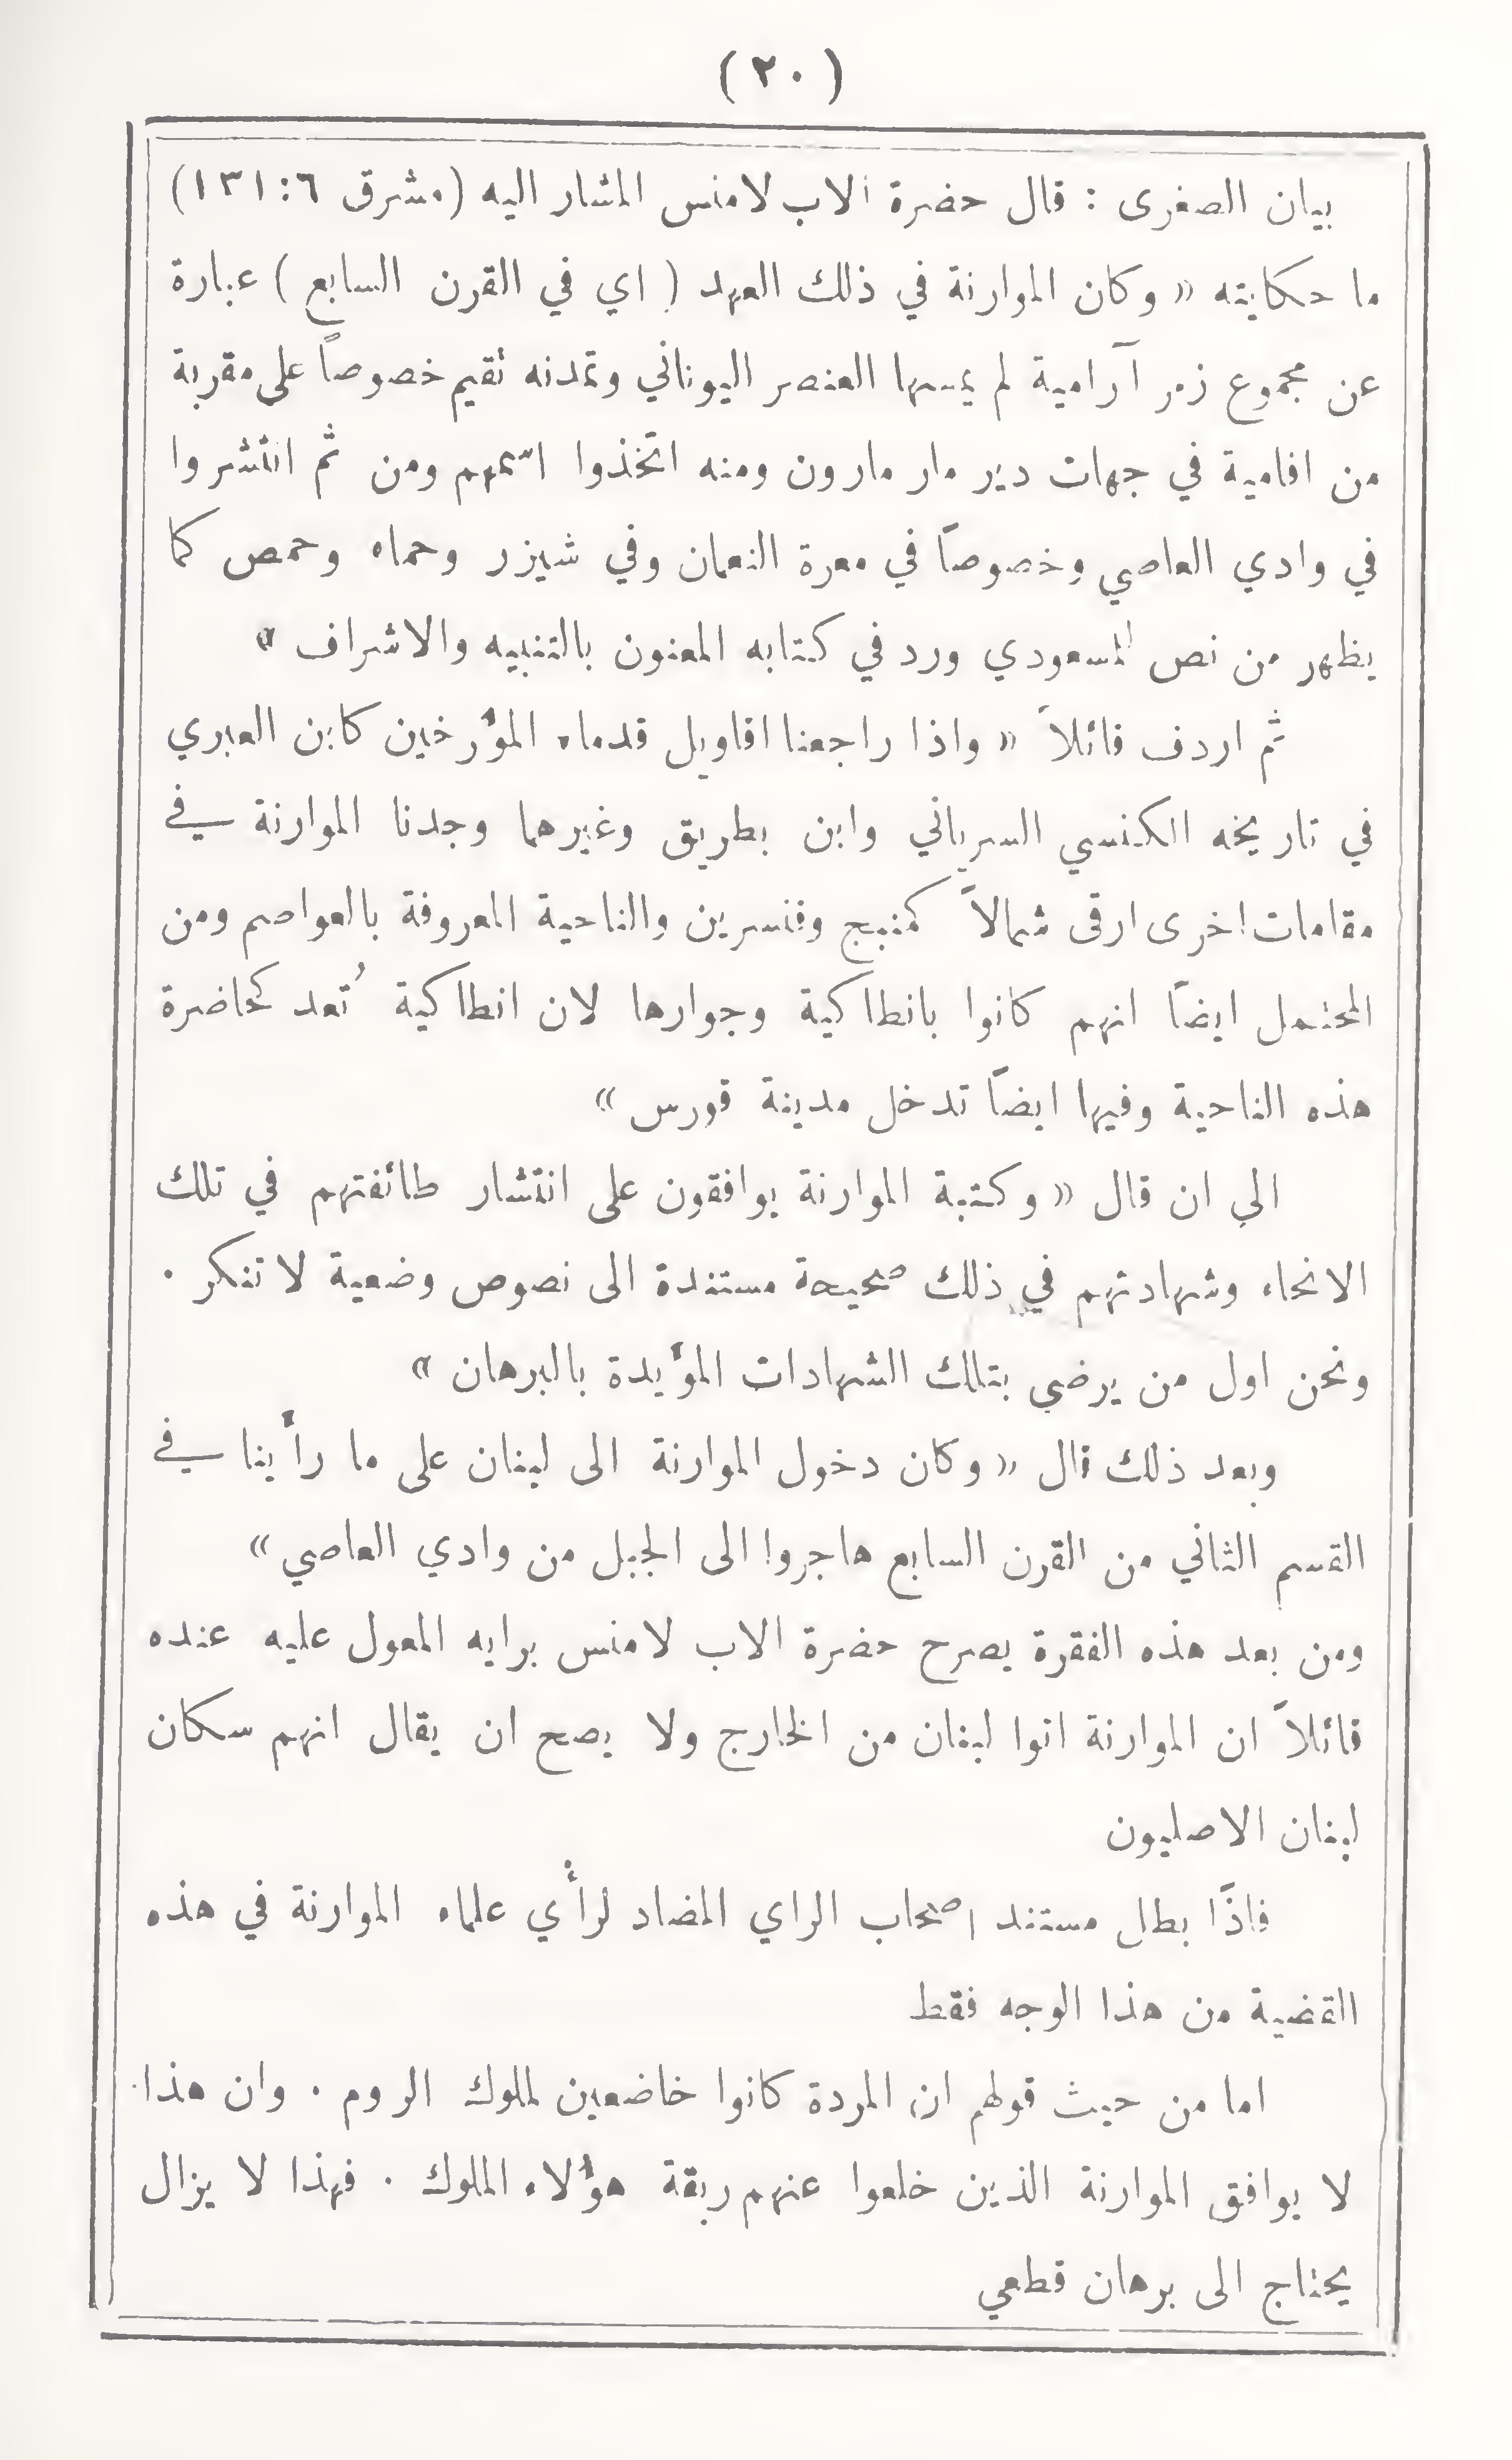 (٢٠)
بيان الصغرى : قال حضرة الاب لامنس المشار اليه (مشرق ٦:١٣١)
ما حكايته « وكان الموارنة في ذلك العهد ( اي في القرن السابع ) عبارة
عن مجموع زمر آرامية لم يمسها العنصر اليوناني وتمدنه تقيم خصوصاً على مقربة
من افامية في جهات دير مار مارون ومنه اتخذوا اسمهم ومن ثم انتشروا
في وادي العاصي وخصوصاً في معرة النعمان وفي شيزر وحماه وحمص كما
يظهر من نص المسعودي ورد في كتابه المعنون بالتنبيه والاشراف »
ثم اردف قائلاً « واذا راجعنا اقاويل قدماء المؤرخين كابن العبري
في تاريخه الكنسي السرياني وابن بطريق وغيرهما وجدنا الموارنة في
مقامات اخرى ارقى شمالاً كمنبج وقنسرين والناحية المعروفة بالعواصم ومن
المحتمل ايضاً انهم كانوا بانطاكية وجوارها لان انطاكية تُعد كحاضرة
هذه الناحية وفيها ايضاً تدخل مدينة قورس »
الى ان قال « وكتبة الموارنة يوافقون على انتشار طائفتهم في تلك
الانحاء وشهادتهم في ذلك صحيحة مستندة الى نصوص وضعية لا تنكر .
ونحن اول من يرضى بتلك الشهادات المؤيدة بالبرهان »
وبعد ذلك قال « وكان دخول الموارنة الى لبنان على ما رأينا في
القسم الثاني من القرن السابع هاجروا الى الجبل من وادي العاصي »
ومن بعد هذه الفقرة يصرح حضرة الاب لامنس برايه المعول عليه عنده
قائلاً ان الموارنة اتوا لبنان من الخارج ولا يصح ان يقال انهم سكان
لبنان الاصليون
فاذًا بطل مستند اصحاب الراي المضاد لرأي علماء الموارنة في هذه
القضية من هذا الوجه فقط
اما من حيث قولهم ان المردة كانوا خاضعين لملوك الروم . وان هذا
لا يوافق الموارنة الذين خلعوا عنهم ربقة هؤلاء الملوك . فهذا لا يزال
يحتاج الى برهان قطعي